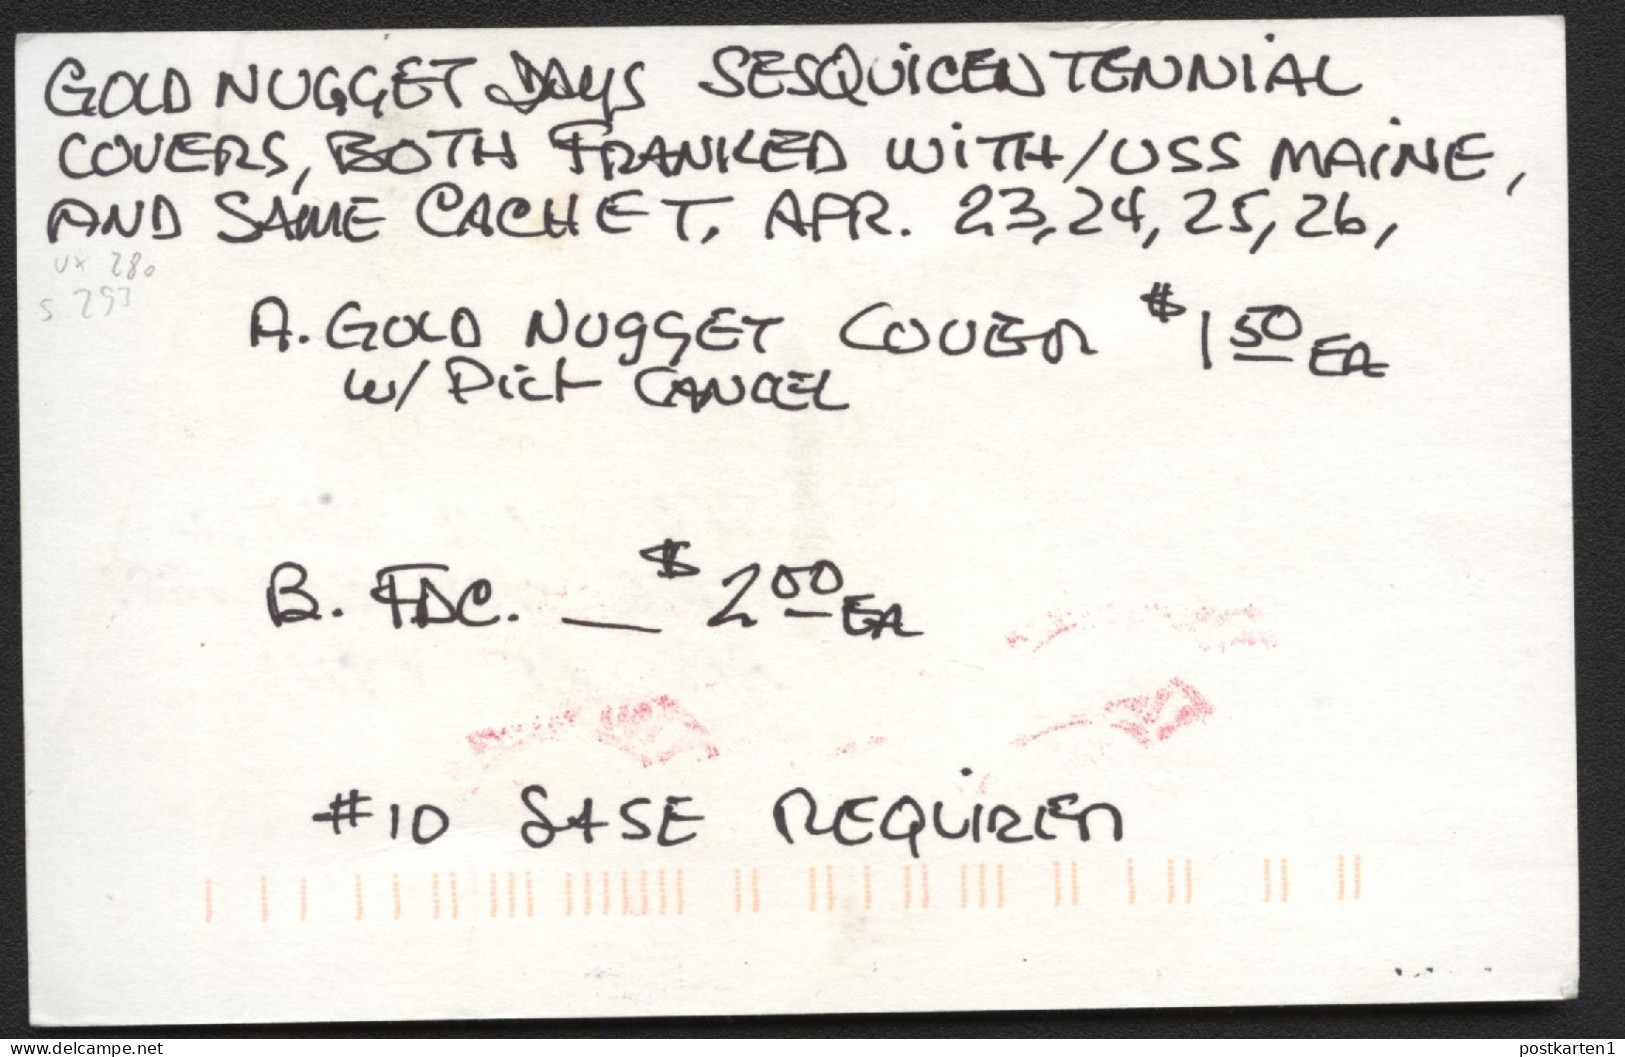 GOLD NUGGET DAYS SESQUICENTENNIAL
COVERS, BOTH FRANKED WITH/USS MAINE,
AND SAME CACHET, APR. 23, 24, 25, 26,
UX 280
S 293
A. GOLD NUGGET COVER $1 50 EA
w/ Pict CANCEL
B. FDC. — $2 00 EA
#10 SASE REQUIRED
www.delcampe.net
postkarten1